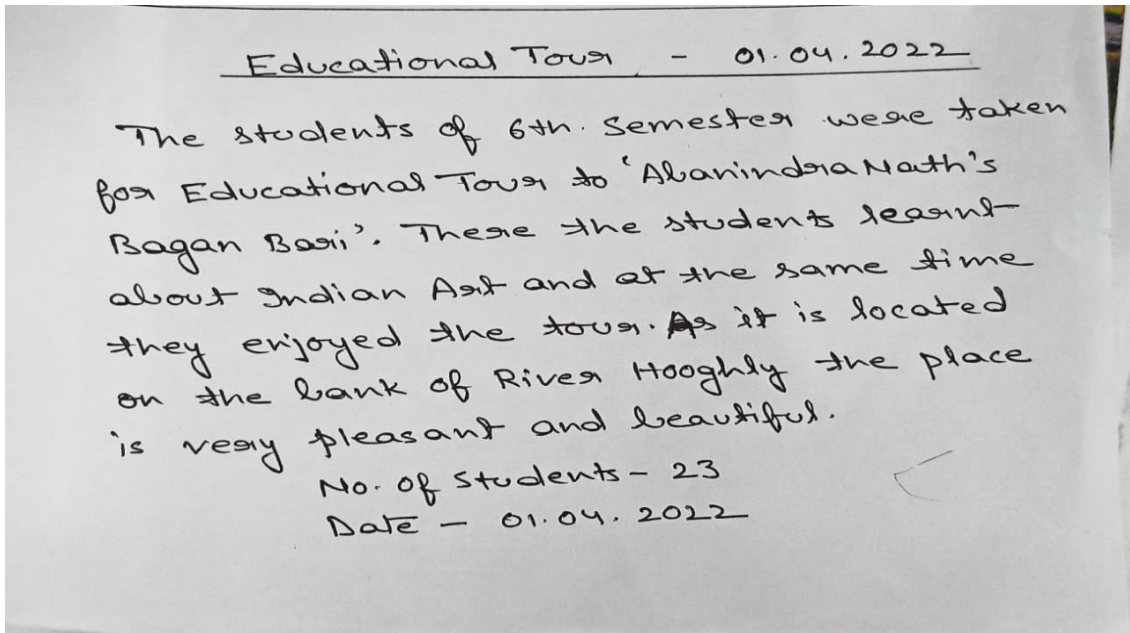 Educational Tour - 01.04.2022
The students of 6th. Semester were taken
for Educational Tour to 'Abanindra Nath's
Bagan Bari'. There the students learnt
about Indian Art and at the same time
they enjoyed the tour. As it is located
on the bank of River Hooghly the place
is very pleasant and beautiful.
No. of Students - 23
Date - 01.04.2022